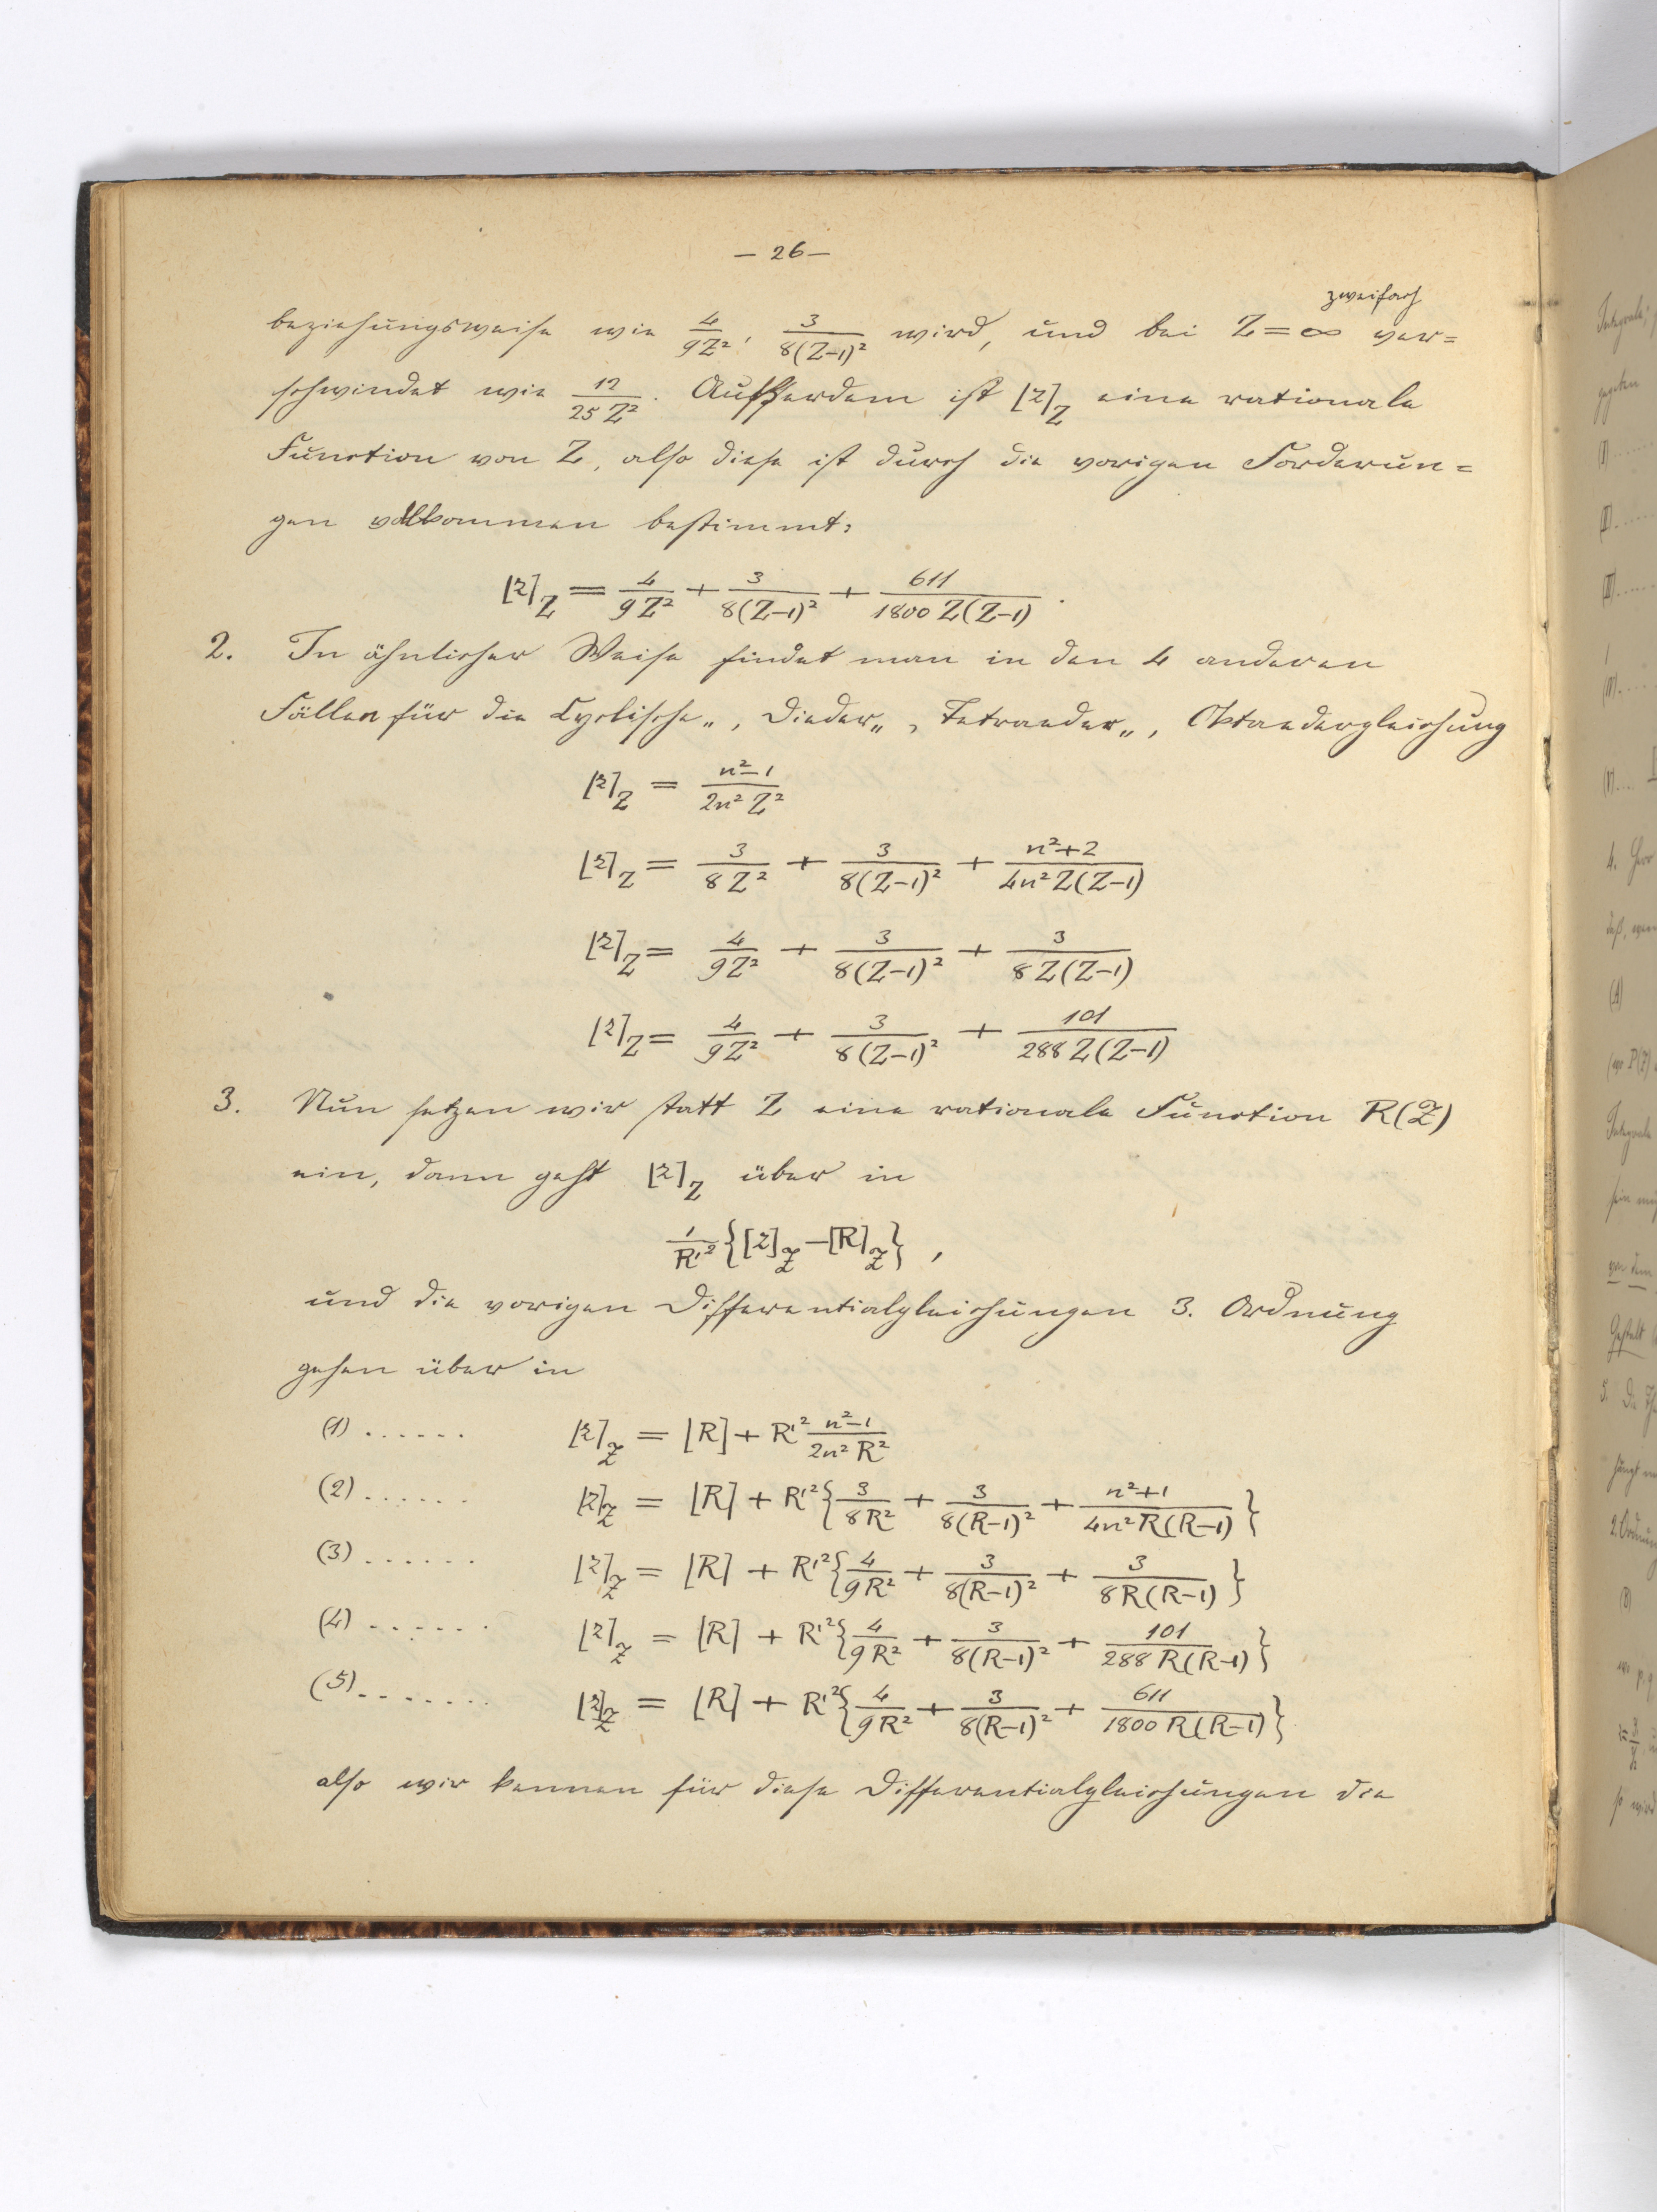 — 26 —
zweifach
beziehungsweise wie 4/9Z², 3/8(Z−1)² wird, und bei Z = ∞ ver=
schwindet wie 12/25Z². Außerdem ist [z]_Z eine rationale
Function von Z, also diese ist durch die vorigen Forderun=
gen vollkommen bestimmt:
[z]_Z = 4/9Z² + 3/8(Z−1)² + 611/1800 Z(Z−1).
2. In ähnlicher Weise findet man in den 4 anderen
Fällen für die Cyclische„, Dieder„, Tetraeder„, Oktaedergleichung
[z]_Z = n²−1/2n² Z²
[z]_Z = 3/8Z² + 3/8(Z−1)² + n²+2/4n² Z(Z−1)
[z]_Z = 4/9Z² + 3/8(Z−1)² + 3/8Z(Z−1)
[z]_Z = 4/9Z² + 3/8(Z−1)² + 101/288 Z(Z−1)
3. Nun setzen wir statt Z eine rationale Function R(Z)
ein, dann geht [z]_Z über in
1/R'² {[z]_Z − [R]_Z},
und die vorigen Differentialgleichungen 3. Ordnung
gehen über in
(1) . . . . . . [z]_Z = [R] + R'² n²−1/2n² R²
(2) . . . . . . [z]_Z = [R] + R'² {3/8R² + 3/8(R−1)² + n²+1/4n² R(R−1)}
(3) . . . . . . [z]_Z = [R] + R'² {4/9R² + 3/8(R−1)² + 3/8R(R−1)}
(4) . . . . . . [z]_Z = [R] + R'² {4/9R² + 3/8(R−1)² + 101/288 R(R−1)}
(5) . . . . . . . [z]_Z = [R] + R'² {4/9R² + 3/8(R−1)² + 611/1800 R(R−1)}
also wir kennen für diese Differentialgleichungen die